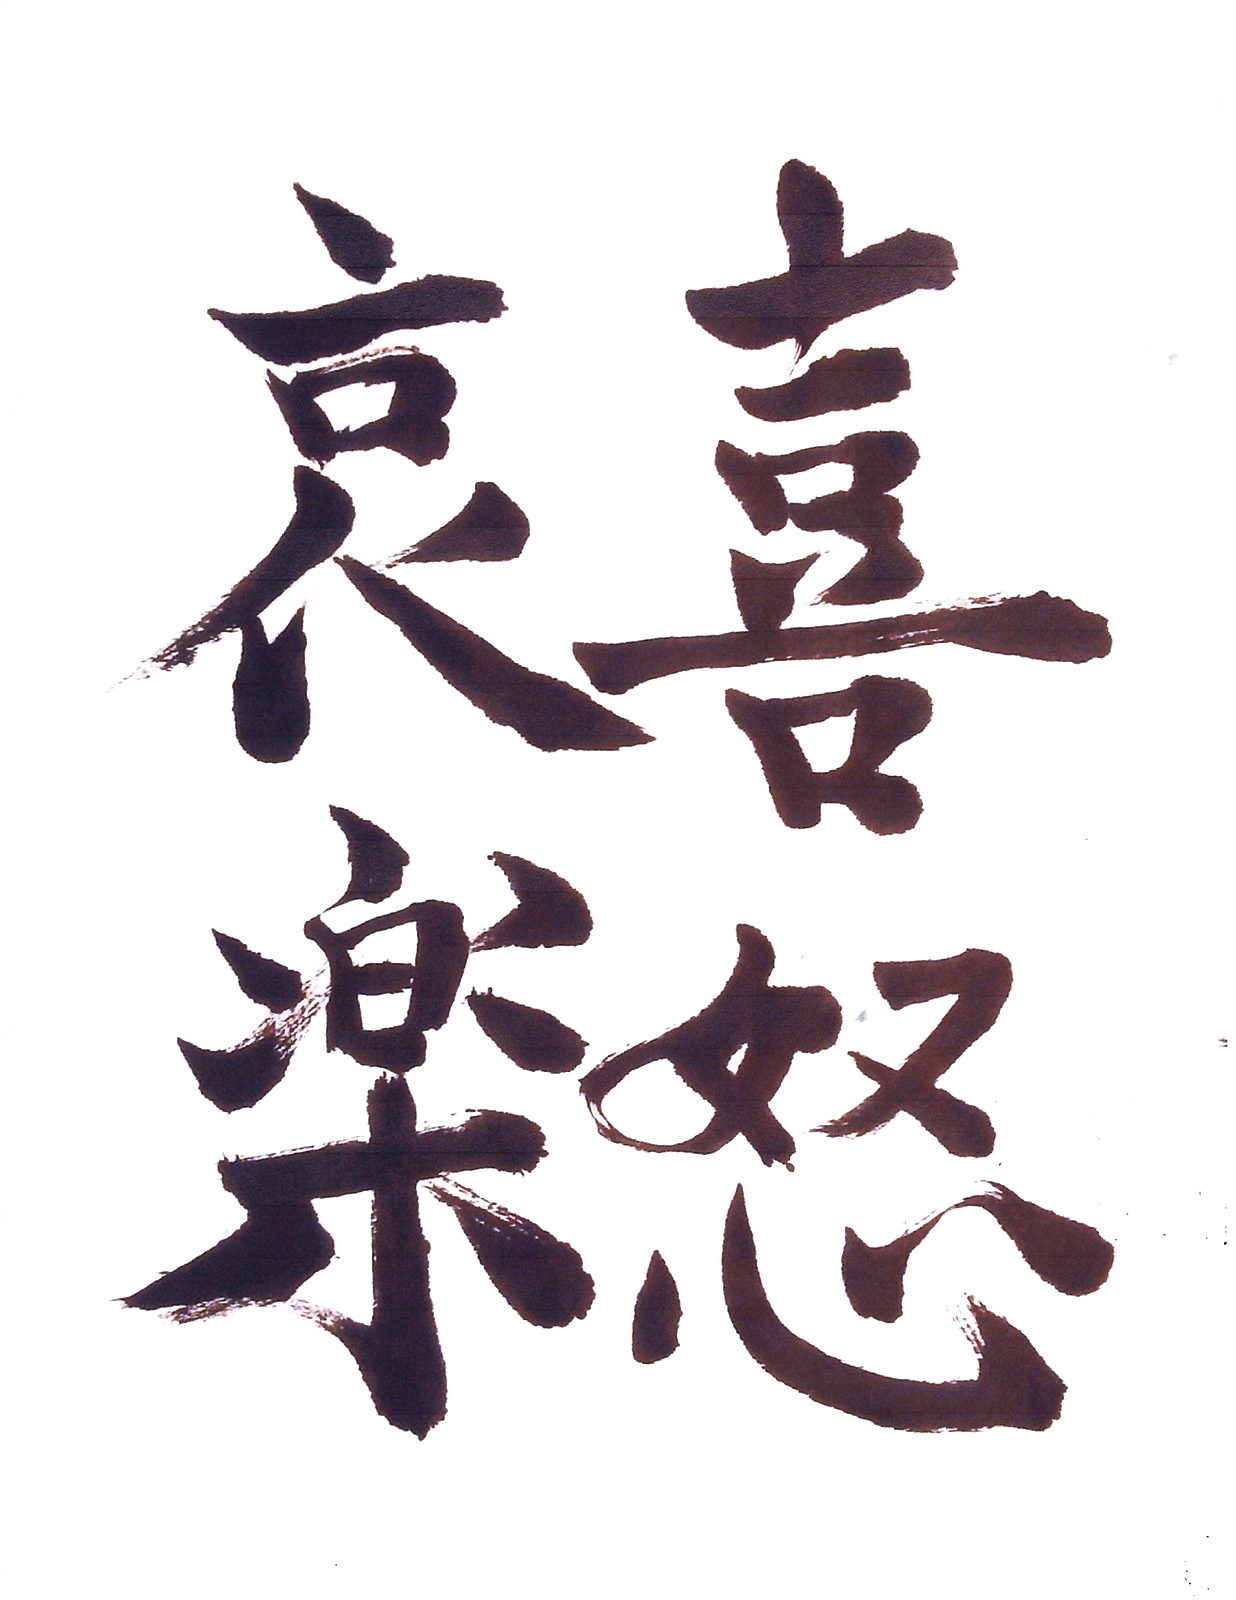 喜怒
哀楽